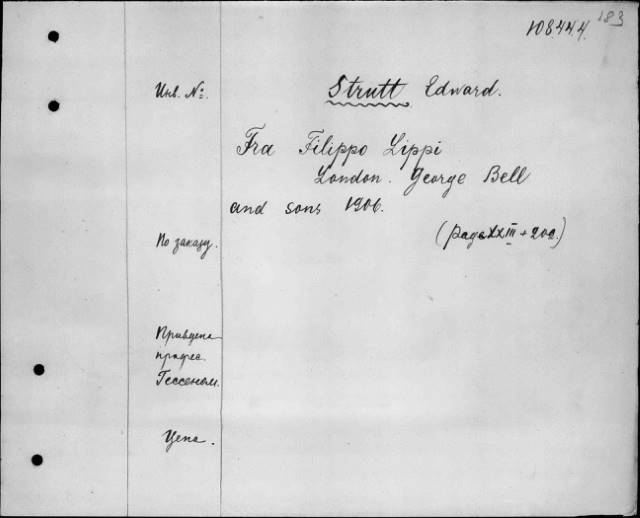 108444. 183
Инв. №.
Strutt Edward.
Fra Filippo Lippi
London. George Bell
and sons 1906.
(pag. XXIII + 202.)
По заказу.
професс.
Гессеном.
Цена.